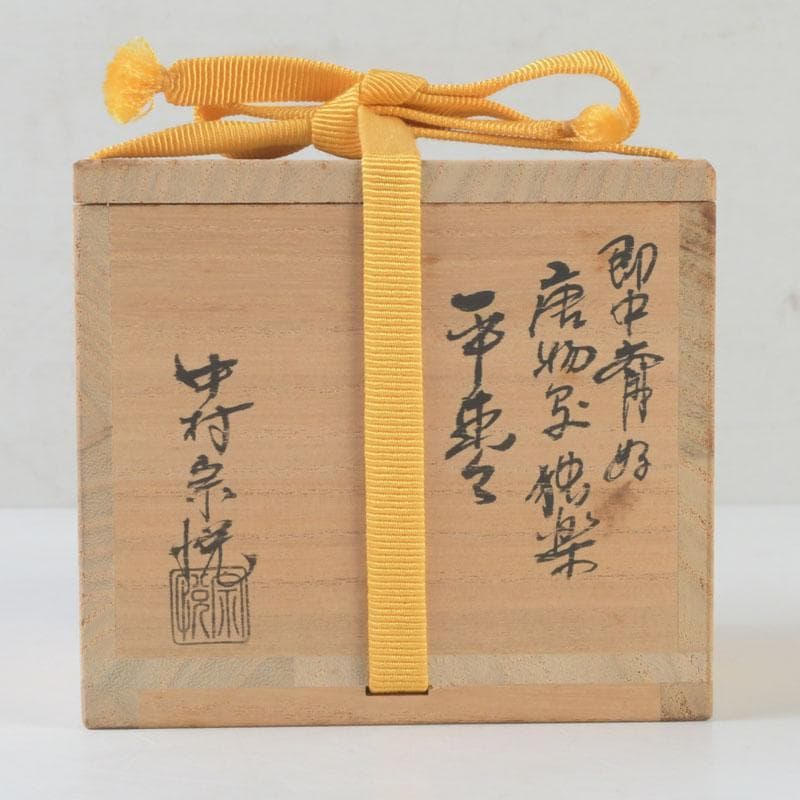 即中斎好
唐物写 独楽
平棗
中村宗悦
宗悦